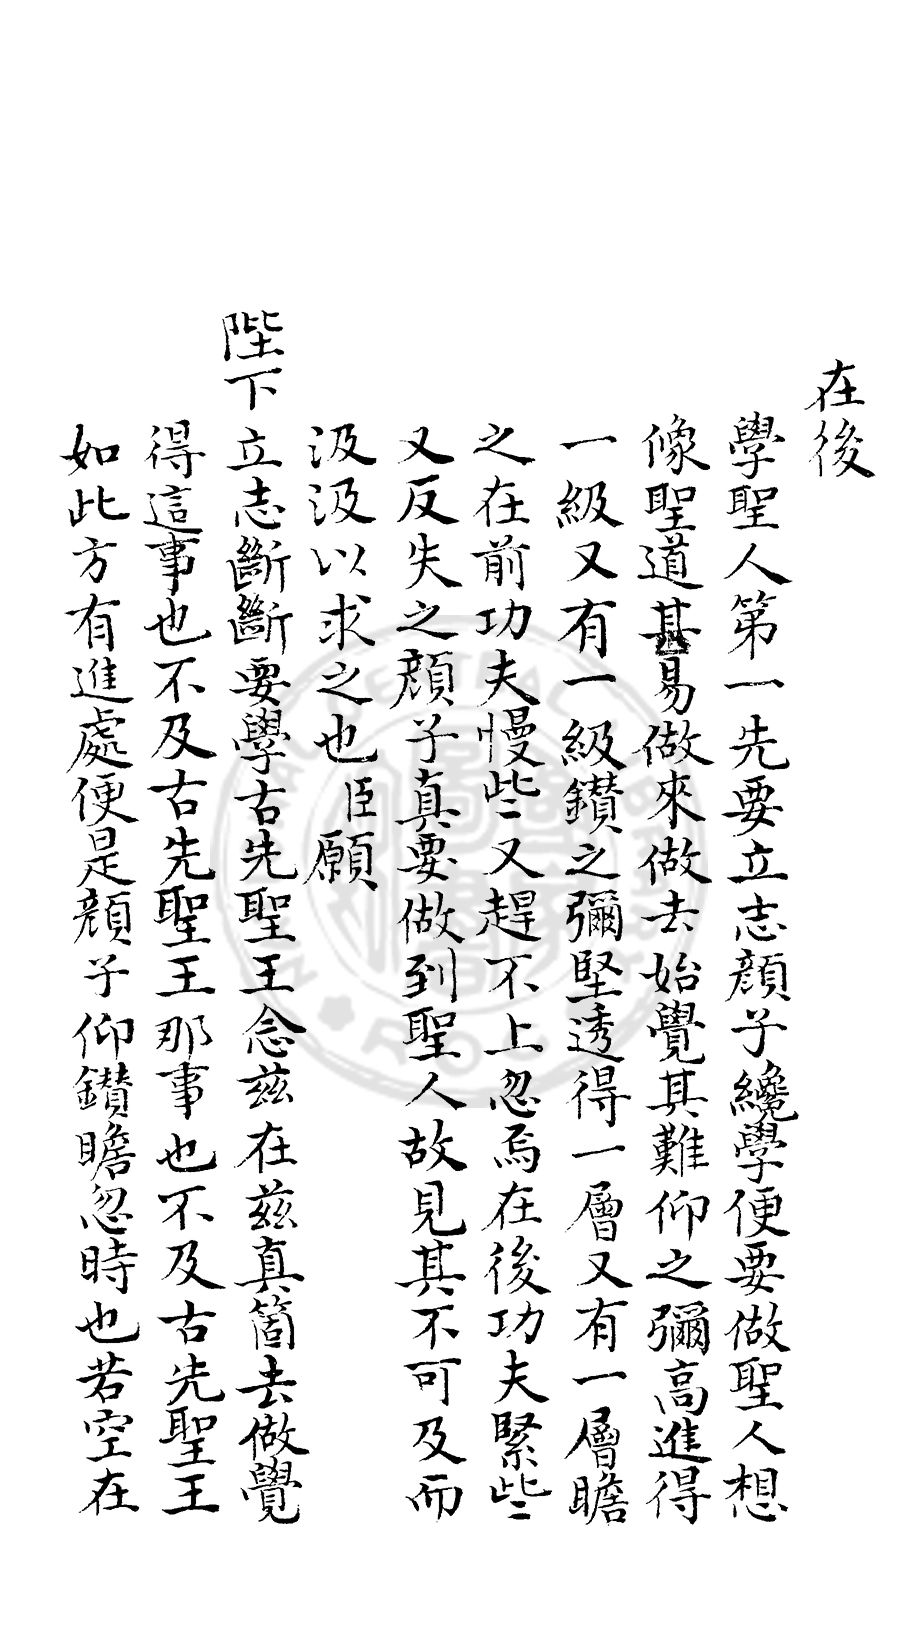 在後
學聖人第一先要立志顔子纔學便要做聖人想
像聖道甚易做來做去始覺其難仰之彌高進得
一級又有一級鑚之彌堅透得一層又有一層瞻
之在前功夫慢些又趕不上忽焉在後功夫緊些
又反失之顔子真要做到聖人故見其不可及而
汲汲以求之也臣願
陛下立志斷斷要學古先聖王念兹在兹真箇去做覺
得這事也不及古先聖王那事也不及古先聖王
如此方有進處便是顔子仰鑚瞻忽時也若空在